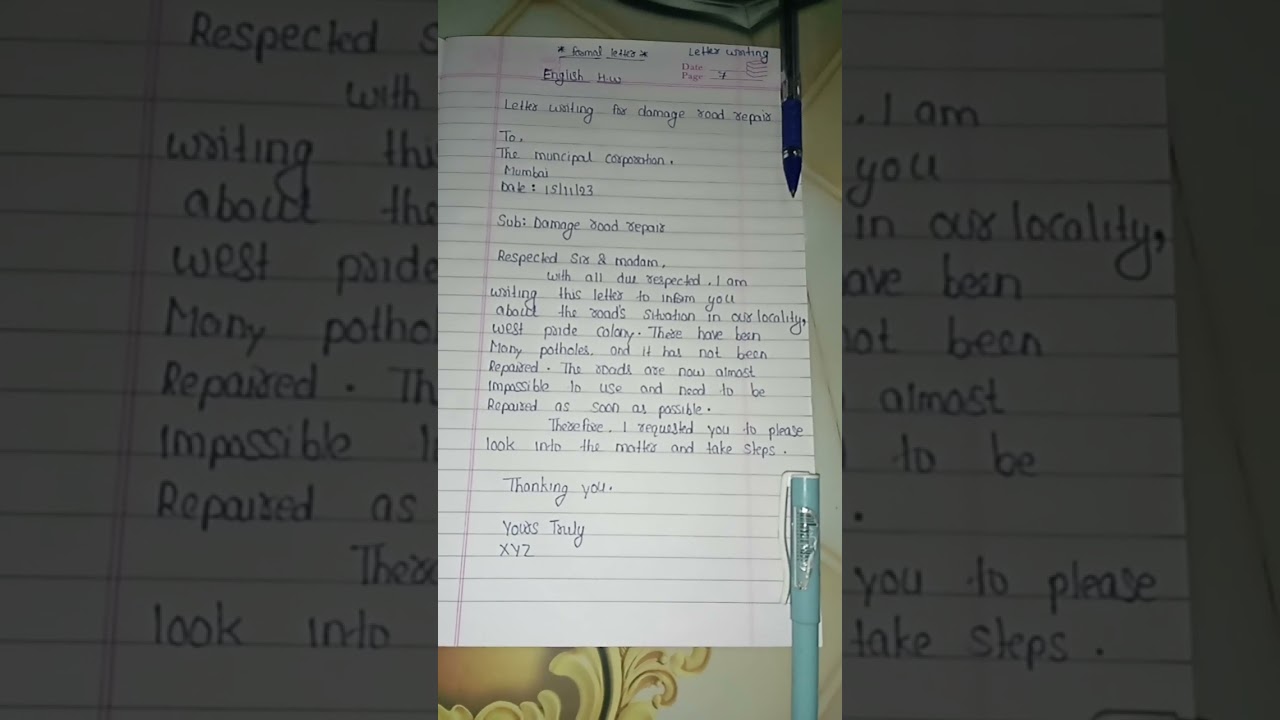 * formal letter *
Letter writing
Date
Page 7
English H.W
Letter writing for damage road repair
To,
The muncipal corporation.
Mumbai
Date : 15/11/23
Sub: Damage road repair
Respected Sir & madam,
with all due respected, I am
writing this letter to inform you
about the road's situation in our locality,
west pride colony. There have been
Many potholes, and it has not been
Repaired. The roads are now almost
impossible to use and need to be
Repaired as soon as possible.
Therefore, I requested you to please
look into the matter and take steps.
Thanking you.
Yours Truly
XYZ